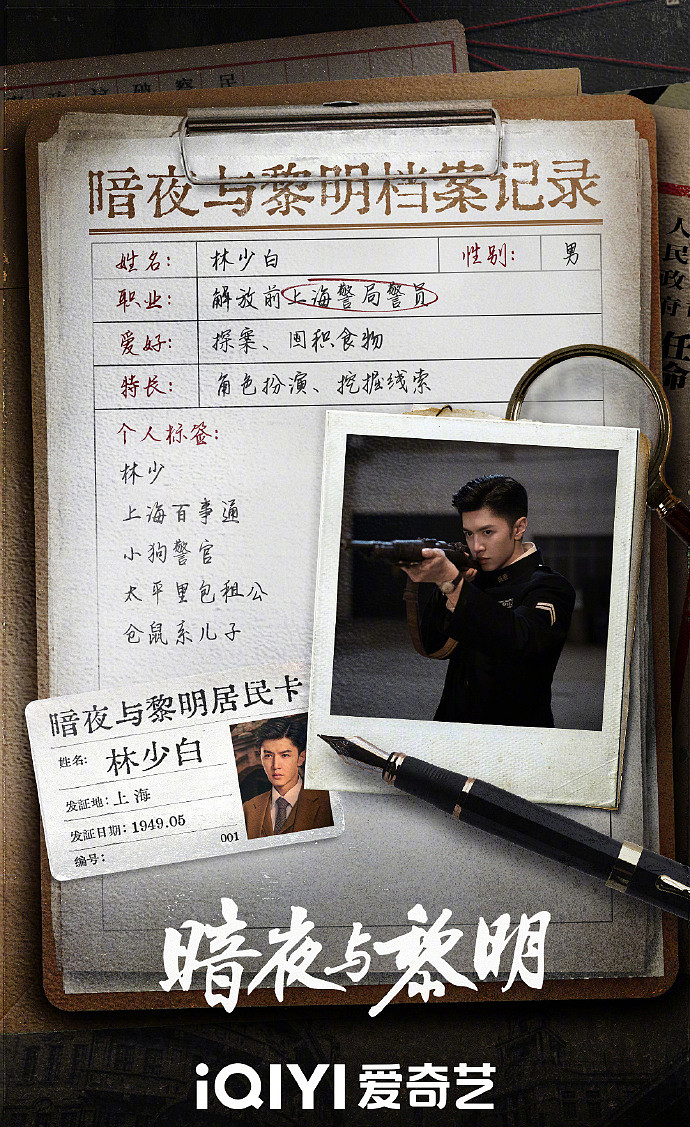 暗夜与黎明档案记录
姓名: 林少白 性别: 男
职业: 解放前上海警局警员
爱好: 探案、囤积食物
特长: 角色扮演、挖掘线索
个人标签:
林少
上海百事通
小狗警官
太平里包租公
仓鼠系儿子
人民政府
任命
暗夜与黎明居民卡
姓名: 林少白
发証地: 上海
发証日期: 1949.05
编号: 001
暗夜与黎明
iQIYI 爱奇艺